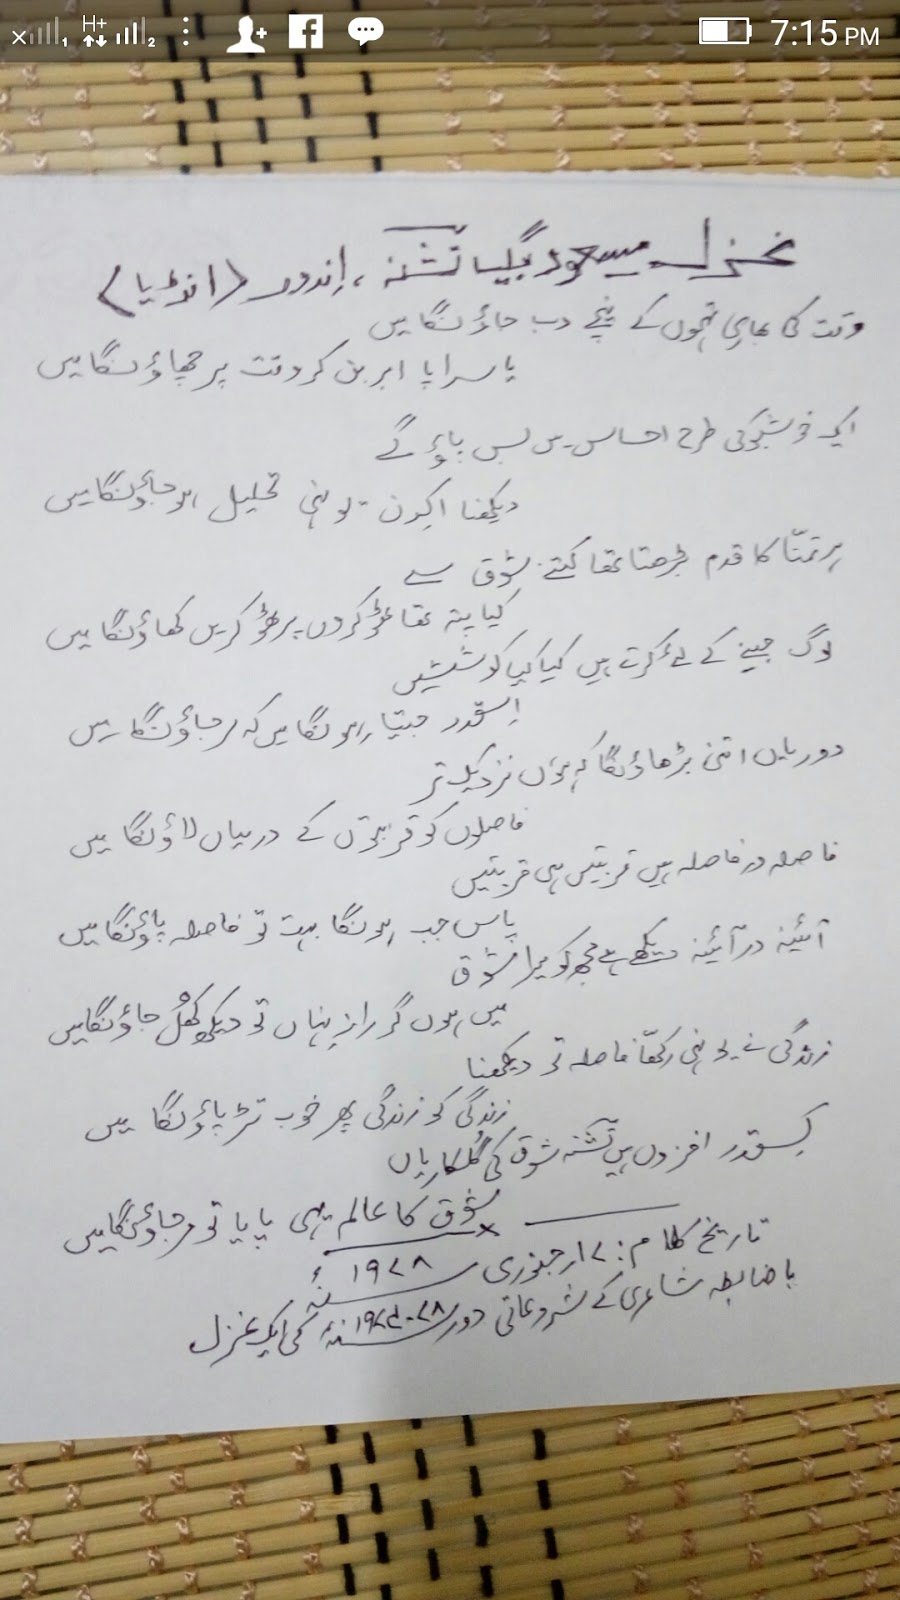 H+
1
2
7:15 PM
غزل مسعود بیگ تشنہ، اِندور (انڈیا)
وقت کی بھاری تہوں کے نیچے دب جاؤنگا میں
یا سراپا ابر بن کر وقت پر چھاؤنگا میں
ایک خوشبو کی طرح احساس میں بس پاؤ گے
دیکھنا اکدن یونہی تحلیل ہو جاؤنگا میں
ہر تمنّا کا قدم بڑھتا تھا کتنے شوق سے
کیا پتہ تھا ٹھوکروں پر ٹھوکریں کھاؤنگا میں
لوگ جینے کے لئے کرتے ہیں کیا کیا کوششیں
اِسقدر جیتا رہونگا میں کہ مر جاؤنگا میں
دوریاں اتنی بڑھاؤنگا کہ ہوں نزدیک تر
فاصلوں کو قربتوں کے درمیاں لاؤنگا میں
فاصلہ در فاصلہ ہیں قربتیں ہی قربتیں
پاس جب ہونگا بہت تو فاصلہ پاؤنگا میں
آئینہ در آئینہ دیکھے ہے مجھ کو میرا شوق
میں ہوں گر رازِ نہاں تو دیکھ کھُل جاؤنگا میں
زندگی نے یونہی رکھّا فاصلہ تو دیکھنا
زندگی کو زندگی بھر خوب تڑپاؤنگا میں
کِسقدر افزوں ہیں تشنہ شوق کی گُلکاریاں
شوق کا عالم یہی پایا تو مر جاؤنگا میں
تاریخ کلام: ۱۷ جنوری ۱۹۷۸ء
با ضابطہ شاعری کے شروعاتی دور سنہ کی ایک غزل